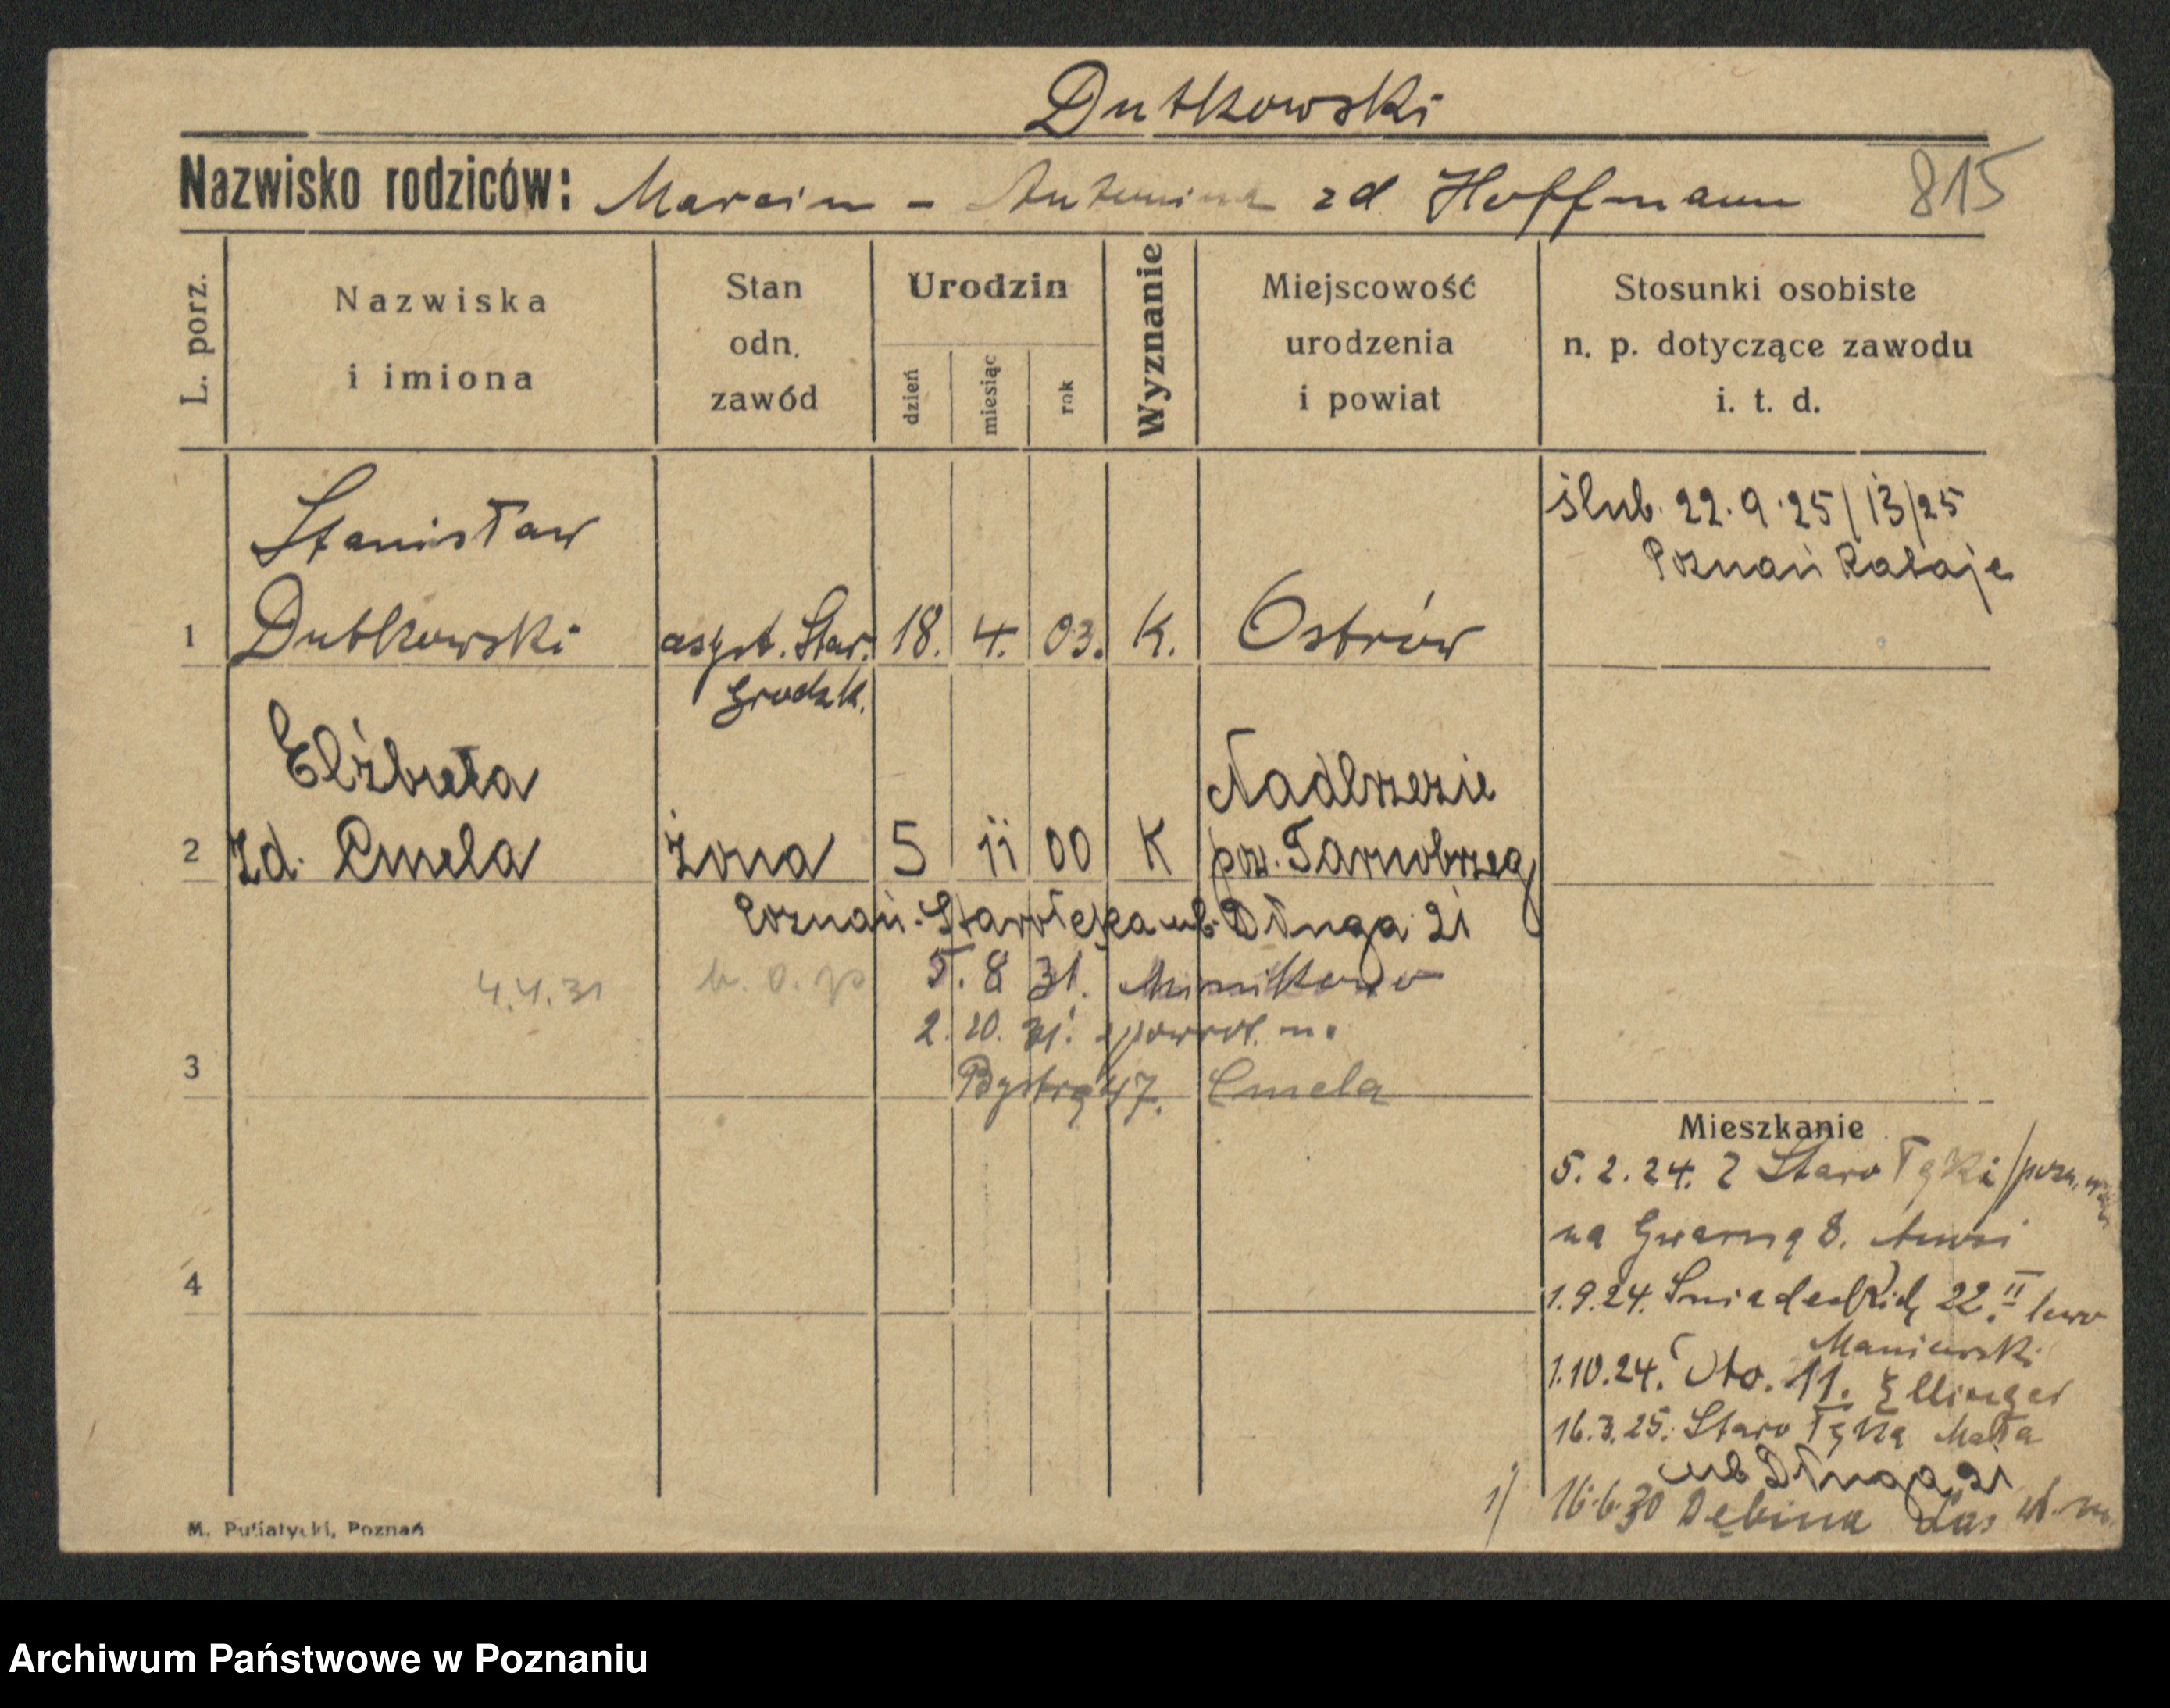 Dutkowski
Nazwisko rodziców: Marcin - Antonina zd Hoffmann 815
L. porz.
Nazwiska
i imiona
Stan
odn.
zawód
Urodzin
dzień
miesiąc
rok
Wyznanie
Miejscowość
urodzenia
i powiat
Stosunki osobiste
n. p. dotyczące zawodu
i. t. d.
ślub. 22.9.25/13/25
Poznań Rataje
Stanisław
1 Dutkowski asyst. Star. 18. 4. 03. K. Ostrów
Grodzk.
Elżbieta Nadbrzezie
2 zd. Cmela żona 5 11 00 K pow. Tarnobrzeg
Poznań. Starołęka ul. Długa 21
4.4.31 5. 8 31. Minikowo
2. 10. 31. zpowrot. m.
3 Bystrą 47. Cmela
Mieszkanie
5. 2. 24. Z Starołęki/pozn.
na Gwarną 8.
4
1.9.24. Śniadeckich 22. II lewo
Maniewski
1.10.24. 11. Ellinger
16.3.25. Starołęka Mała
ul Długa 21
1/ 16.6.30 Dębina Las
M. Putiatycki, Poznań
Archiwum Państwowe w Poznaniu